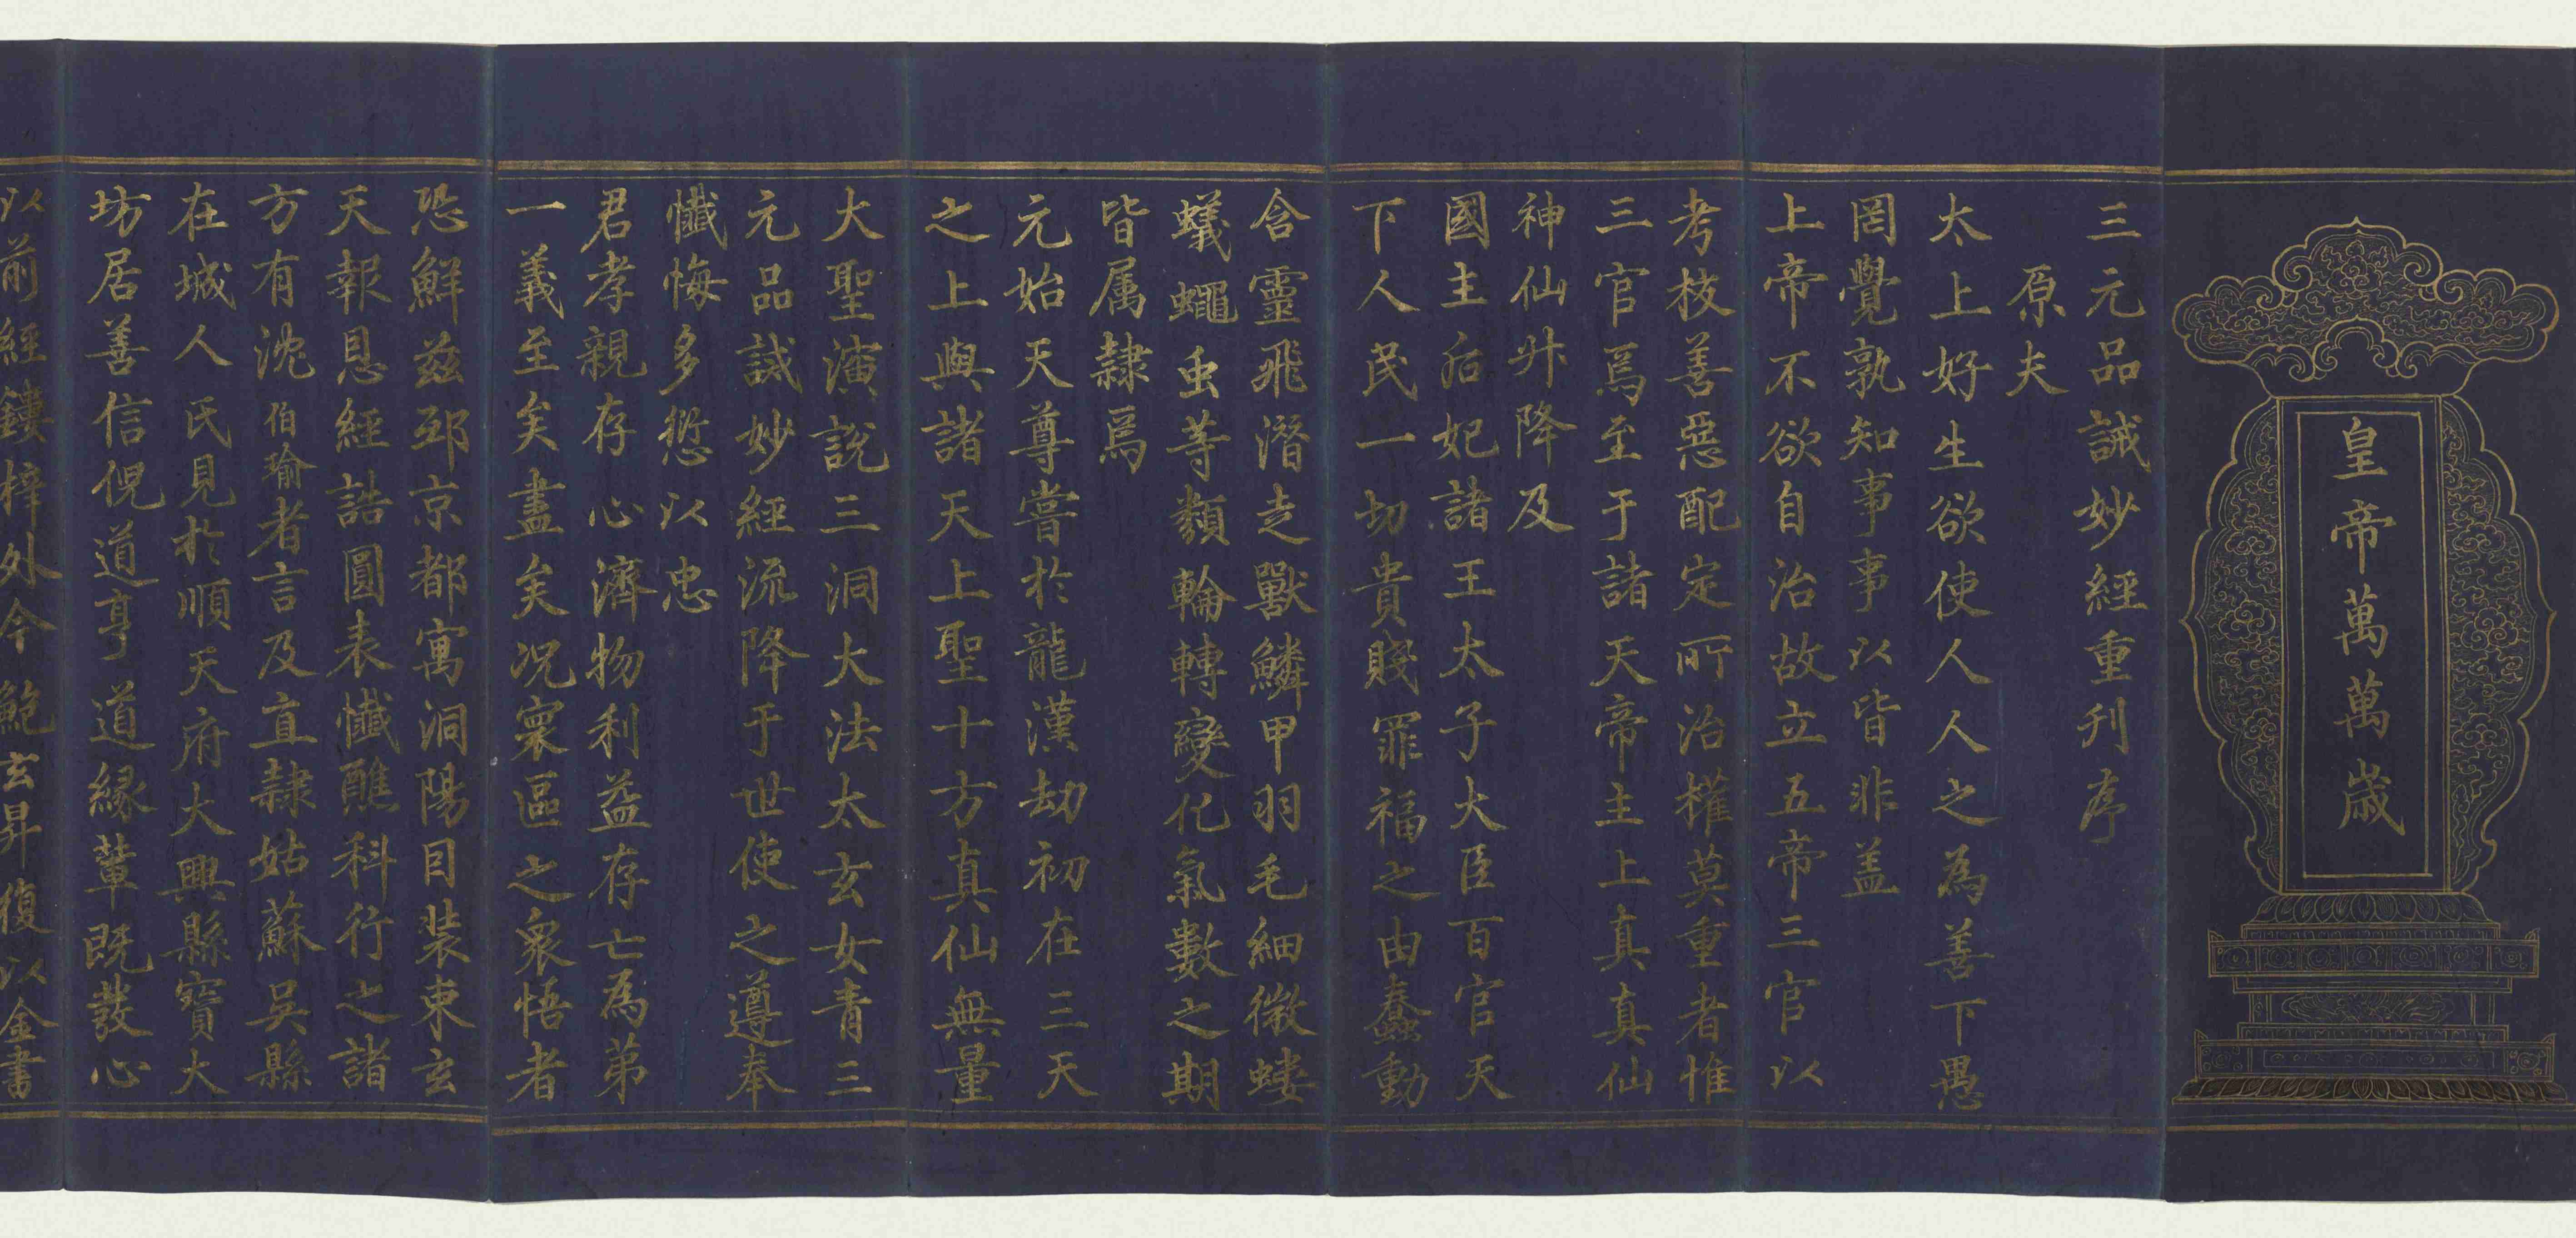 皇帝萬萬歲
三元品誡妙經重刋序
原夫
太上好生欲使人人之為善下愚
罔覺孰知事事以皆非盖
上帝不欲自治故立五帝三官以
考校善惡配定所治權莫重者惟
三官焉至于諸天帝主上真真仙
神仙升降及
國主后妃諸王太子大臣百官天
下人民一切貴賤罪福之由蠢動
含靈飛潛走獸鱗甲羽毛細微螻
蟻蠅虫等類輪轉變化氣數之期
皆属隸焉
元始天尊嘗於龍漢劫初在三天
之上與諸天上聖十方真仙無量
大聖演說三洞大法太玄女青三
元品誡妙經流降于世使之遵奉
懺悔多愆以忠
君孝親存心濟物利益存亡為弟
一義至矣盡矣况寰區之衆悟者
恐鮮兹邳京都寓洞陽目裝東玄
天報恩經誥圓表懺醮科行之諸
方有沈伯瑜者言及直隸姑蘇吳縣
在城人氏見於順天府大興縣寶大
坊居善信倪道亨道緣輩既發心
以前經鏤梓外今鮑玄昇復以金書